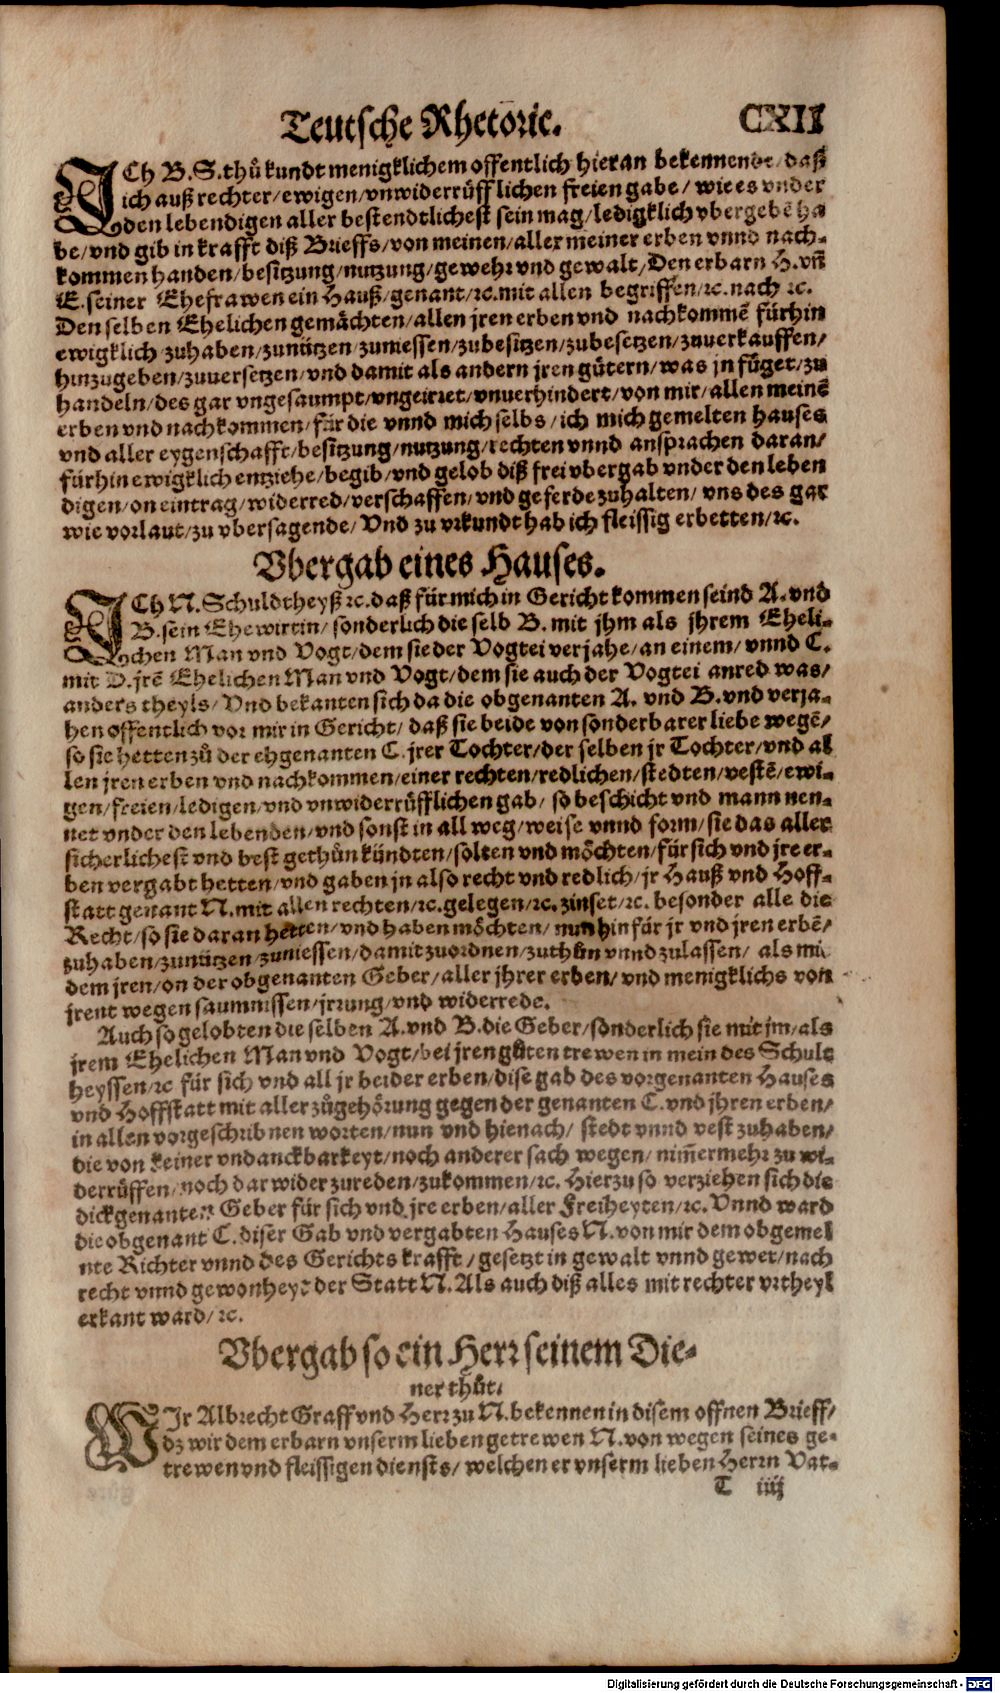 Teutsche Rhetoric. CXII
ICh B.S.thů kundt menigklichem offentlich hieran bekennende/daß
ich auß rechter/ewigen/vnwiderrüfflichen freien gabe/ wie es vnder
den lebendigen aller bestendtlichest sein mag/ledigklich vbergebē ha
be/vnd gib in krafft diß Brieffs/von meinen/aller meiner erben vnnd nach-
kommen handen/besitzung/nutzung/gewehr vnd gewalt/Den erbarn H.vñ
E.seiner Ehefrawen ein Hauß/genant/ꝛc.mit allen begriffen/ꝛc.nach ꝛc.
Den selben Ehelichen gemächten/allen jren erben vnd nachkommē fürhin
ewigklich zuhaben/zunützen/zuniessen/zubesitzen/zubesetzen/zuuerkauffen/
hinzugeben/zuuersetzen/vnd damit als andern jren gütern/was jn füget/zu
handeln/des gar vngesaumpt/vngeirret/vnuerhindert/von mir/allen meinē
erben vnd nachkommen/für die vnnd mich selbs/ich mich gemelten hauses
vnd aller eygenschafft/besitzung/nutzung/rechten vnnd ansprachen daran/
fürhin ewigklich entziehe/begib/vnd gelob diß frei vbergab vnder den leben
digen/on eintrag/widerred/verschaffen/vnd geferde zuhalten/vns des gar
wie vorlaut/zu vbersagende/ Vnd zu vrkundt hab ich fleissig erbetten/ꝛc.
Vbergab eines Hauses.
ICh N.Schuldtheyß ꝛc.daß für mich in Gericht kommen seind A.vnd
B.sein Ehewirtin/ sonderlich die selb B. mit jhm als jhrem Eheli-
chen Man vnd Vogt/dem sie der Vogtei verjahe/an einem/ vnnd C.
mit D.jrē Ehelichen Man vnd Vogt/dem sie auch der Vogtei anred was/
anders theyls/ Vnd bekanten sich da die obgenanten A. vnd B.vnd verja-
hen offentlich vor mir in Gericht/ daß sie beide von sonderbarer liebe wegē/
so sie hetten zů der ehgenanten C.jrer Tochter/der selben jr Tochter/vnd al
len jren erben vnd nachkommen/einer rechten/redlichen/stedten/vestē/ewi-
gen/freien/ledigen/vnd vnwiderrüfflichen gab/ so beschicht vnd mann nen-
net vnder den lebenden/vnd sonst in all weg/weise vnnd form/sie das aller
sicherlichest vnd best gethůn kündten/solten vnd möchten/für sich vnd jre er-
ben vergabt hetten/vnd gaben jn also recht vnd redlich/jr Hauß vnd Hoff-
statt genant N.mit allen rechten/ꝛc.gelegen/ꝛc.zinset/ꝛc. besonder alle die
Recht/so sie daran hetten/vnd haben möchten/ nun hin für jr vnd jren erbē/
zuhaben/zunützen/zuniessen/damit zuordnen/zuthůn vnnd zulassen/ als mit
dem jren/on der obgenanten Geber/aller jhrer erben/vnd menigklichs von
jrent wegen saumnissen/jrrung/vnd widerrede.
Auch so gelobten die selben A.vnd B.die Geber/sonderlich sie mit jm/als
jrem Ehelichen Man vnd Vogt/bei jren gůten trewen in mein des Schult
heyssen/ꝛc für sich vnd all jr beider erben/dise gab des vorgenanten Hauses
vnd Hoffstatt mit aller zůgehörung gegen der genanten C.vnd jhren erben/
in allen vorgeschribnen worten/nun vnd hienach/ stedt vnnd vest zuhaben/
die von keiner vndanckbarkeyt/noch anderer sach wegen/ nim̄ermehr zu wi-
derrüffen/noch darwider zureden/zukommen/ꝛc. Hierzu so verziehen sich die
dickgenanten Geber für sich vnd jre erben/aller Freiheyten/ꝛc. Vnnd ward
die obgenant C.diser Gab vnd vergabten Hauses N.von mir dem obgemel
nte Richter vnnd des Gerichts krafft/gesetzt in gewalt vnnd gewer/nach
recht vnnd gewonheyt der Statt N.Als auch diß alles mit rechter vrtheyl
erkant ward/ꝛc.
Vbergab so ein Herr seinem Die-
ner thůt.
WIr Albrecht Graff vnd Herr zu N.bekennen in disem offnen Brieff/
dz wir dem erbarn vnserm lieben getrewen N.von wegen seines ge-
trewen vnd fleissigen diensts/ welchen er vnserm lieben Herrn Vat-
T iiij
Digitalisierung gefördert durch die Deutsche Forschungsgemeinschaft - DFG